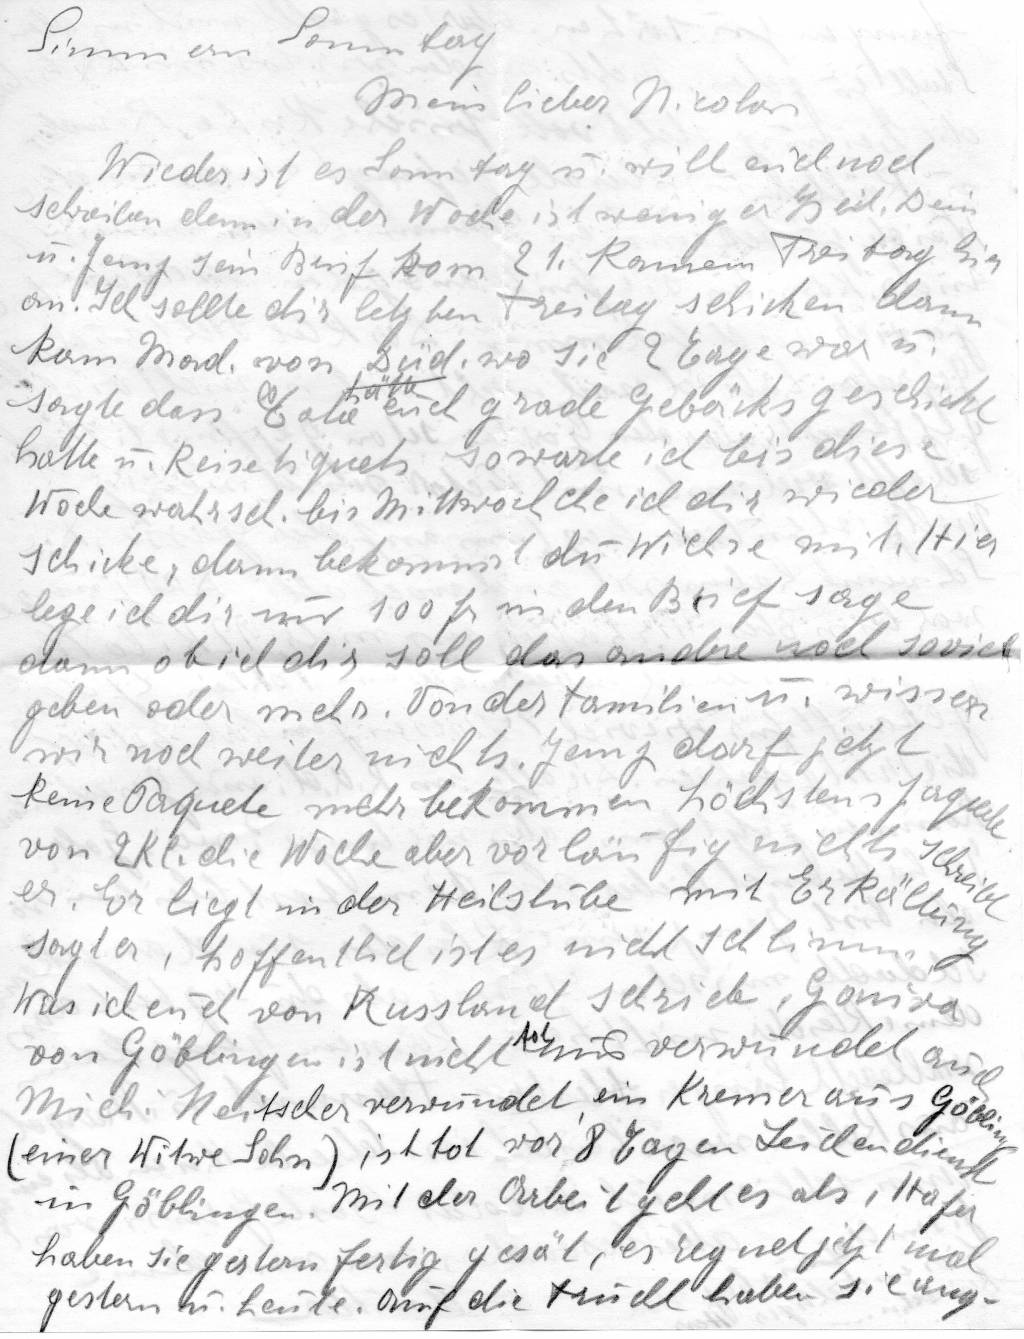 Simmern Sonntag
Mein lieber Nicolas
Wieder ist es Sonntag u. will euch noch
schreiben denn in der Woche ist weniger Zeit. Dein
u. Jemp sein Brief kam 21. Kamen Freitag hier
an. Ich sollte dir letzten Freitag schicken dann
kam Mad. von Düd. wo sie 2 Tage war u.
sagte dass euch grade Gebäcks geschickt
hatte u. Reisetiquets so warte ich bis diese
Woche wahrsch. bis Mittwoch ehe ich dir wieder
schicke, dann bekommst du Wichse mit. Hier
lege ich dir nur 100 fr in den Brief sage
dann ob ich dir soll das andre noch soviel
geben oder mehr. Von der Familien u. wissen
wir noch weiter nichts. Jemp darf jetzt
keine Paquete mehr bekommen höchstens paquete
von 2 Kl. die Woche aber vorläufig nichts schreibt
er. Er liegt in der Heilstube mit Erkältung
sagt er, hoffentlich ist es nicht schlimm,
Was ich euch von Russland schrieb,
von Göblingen ist nicht tot nur verwundet auch
Mich. Neitscher verwundet, ein Kremer aus Göblingen
(einer Witwe Sohn) ist tot vor 8 Tagen Leichendienst
in Göblingen. Mit der Arbeit geht es als, Hafer
haben sie gestern fertig gesät, es regnet jetzt mal
gestern u. heute. auf die haben sie ang-